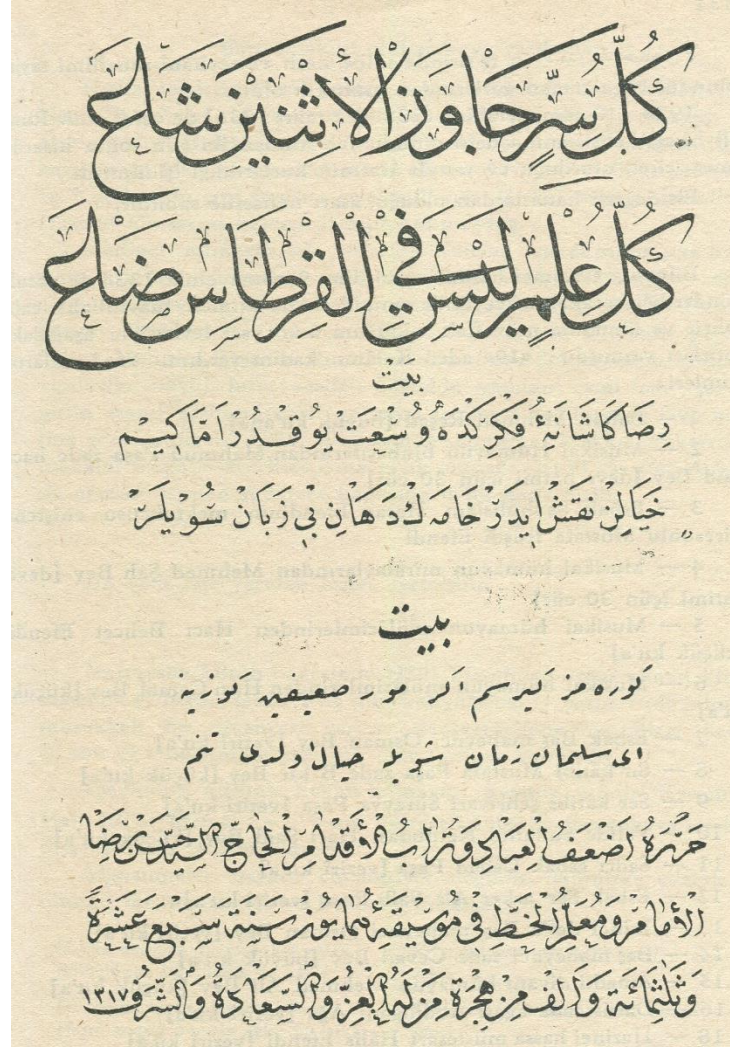 كُلُّ سِرٍّ جَاوَزَ الْاِثْنَيْنِ شَاعَ
كُلُّ عِلْمٍ لَيْسَ فِي الْقِرْطَاسِ ضَاعَ
بيت
رضا كاشانهٔ فكركده وسعت يوقدر اما كيم
خيالن نقش ايدر خامه ك دهان بى زبان سويلر
بيت
كوره مز كيرسم كر مور ضعيفين كوزينه
اى سليمان زمان شويله خيال اولدى تنم
حَرَّرَهُ اَضْعَفُ الْعِبَادِ وَتُرَابُ الْأَقْدَامِ الْحَاجّ السَّيِّد حَسَن رِضَا
الْأِمَامْ وَمُعَلِّمُ الْخَطِّ فِى مُوسِيقَهٔ هُمَايُونْ سَنَة سَبْعَ عَشْرَةَ
وَثَلٰثُمِائَة وَاَلْف مِنْ هِجْرَةِ مَنْ لَهُ الْعِزُّ وَالسَّعَادَةُ وَالشَّرَفُ ١٣١٧